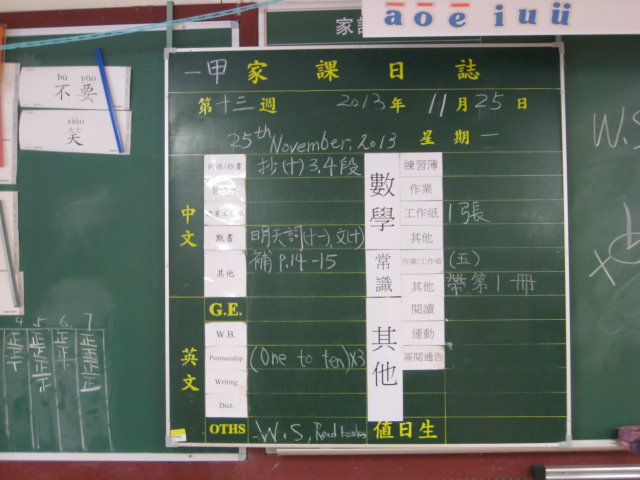 ā ō ē i u ü
家
bú yào
不 要
xiào
笑
一甲 家 課 日 誌
第十三週 2013年 11月25日
25th November, 2013 星期一
中文
抄(十)3,4段
默書 明天詞(十一),文(十)
其他 補 P.14-15
數學
練習簿
作業
工作紙 1張
其他
常識
作業/工作紙 (五)
其他 帶第1冊
英文
G.E.
W.B.
Penmanship (One to ten)×3
Writing
Dict.
OTHS W.S, Read books
其他
閱讀
運動
簽閱通告
值日生
4 5 6 7
W.S